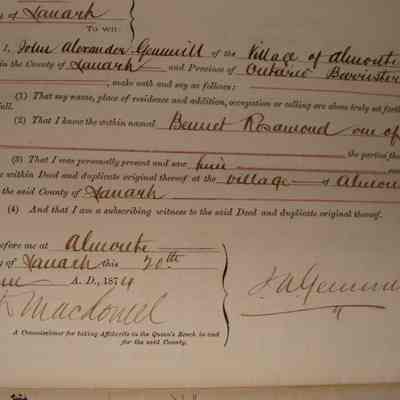 of Lanark
To wit:
I, John Alexander Gemmill of the Village of Almonte
in the County of Lanark and Province of Ontario Barrister
, make oath and say as follows:
(1) That my name, place of residence and addition, occupation or calling are above truly set forth
full.
(2) That I know the within named Bennet Rosamond one of
the parties the
(3) That I was personally present and saw him
e within Deed and duplicate original thereof at the Village of Almon
the said County of Lanark
(4) And that I am a subscribing witness to the said Deed and duplicate original thereof.
efore me at Almonte
y of Lanark this 20th
A. D., 1874
Macdowel
J A Gemmill
A Commissioner for taking Affidavits in the Queen's Bench in and
for the said County.